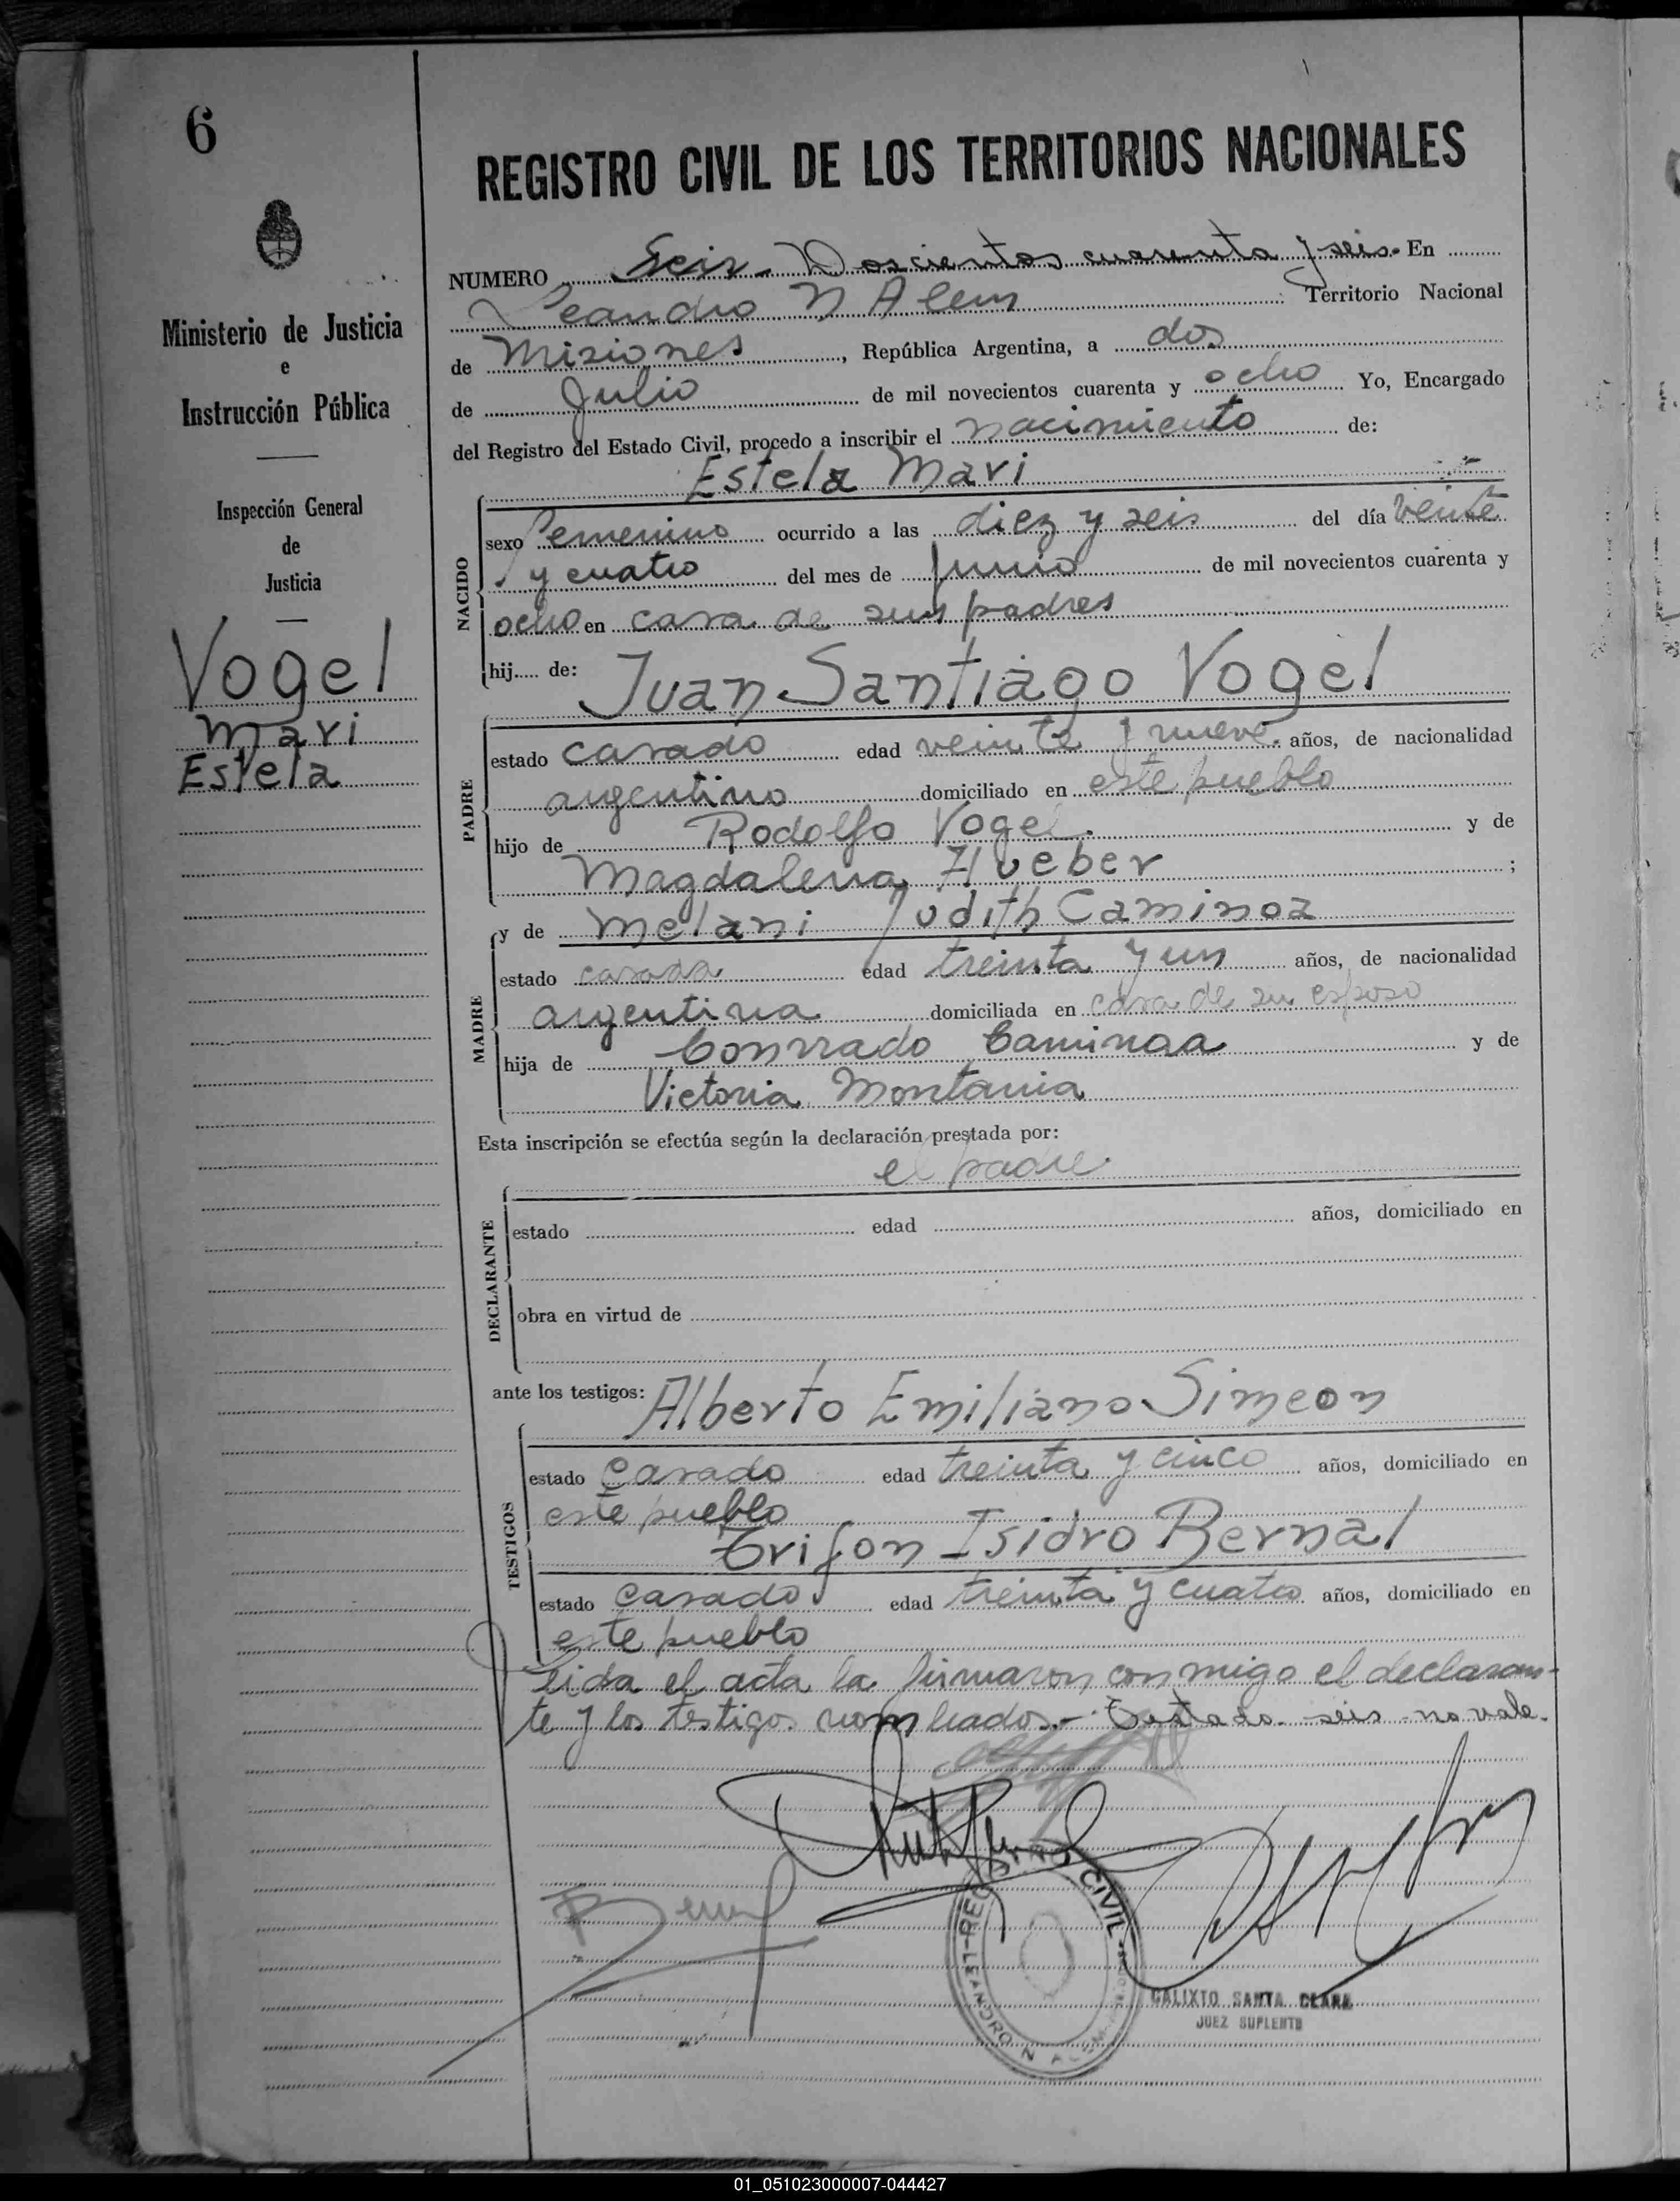 6
Ministerio de Justicia
e
Instrucción Pública
Inspección General
de
Justicia
Vogel
Mari
Estela
REGISTRO CIVIL DE LOS TERRITORIOS NACIONALES
NUMERO Seis - Doscientos cuarenta y seis. En
Leandro N Alem Territorio Nacional
de Misiones, República Argentina, a dos
de Julio de mil novecientos cuarenta y ocho Yo, Encargado
del Registro del Estado Civil, procedo a inscribir el nacimiento de:
Estela Mari
NACIDO
sexo femenino ocurrido a las diez y seis del día veinte
y cuatro del mes de Junio de mil novecientos cuarenta y
ocho en casa de sus padres
hij..... de: Juan Santiago Vogel
PADRE
estado casado edad veinte y nueve. años, de nacionalidad
argentino domiciliado en este pueblo
hijo de Rodolfo Vogel. y de
Magdalena Hueber ;
y de Melani Judith Caminoa
MADRE
estado casada edad treinta y un años, de nacionalidad
argentina domiciliada en casa de su esposo
hija de Conrrado Caminoa y de
Victoria Montania
Esta inscripción se efectúa según la declaración prestada por:
el padre.
DECLARANTE
estado edad años, domiciliado en
obra en virtud de
ante los testigos: Alberto Emiliano Simeon
TESTIGOS
estado casado edad treinta y cinco años, domiciliado en
este pueblo
Trifon Isidro Bernal
estado casado edad treinta y cuatro años, domiciliado en
este pueblo
Leida el acta la firmaron conmigo el declaran-
te y los testigos nombrados.- Testado - seis - no vale.
REGISTRO CIVIL
LEANDRO N ALEM
CALIXTO SANTA CLARA
JUEZ SUPLENTE
01_051023000007-044427